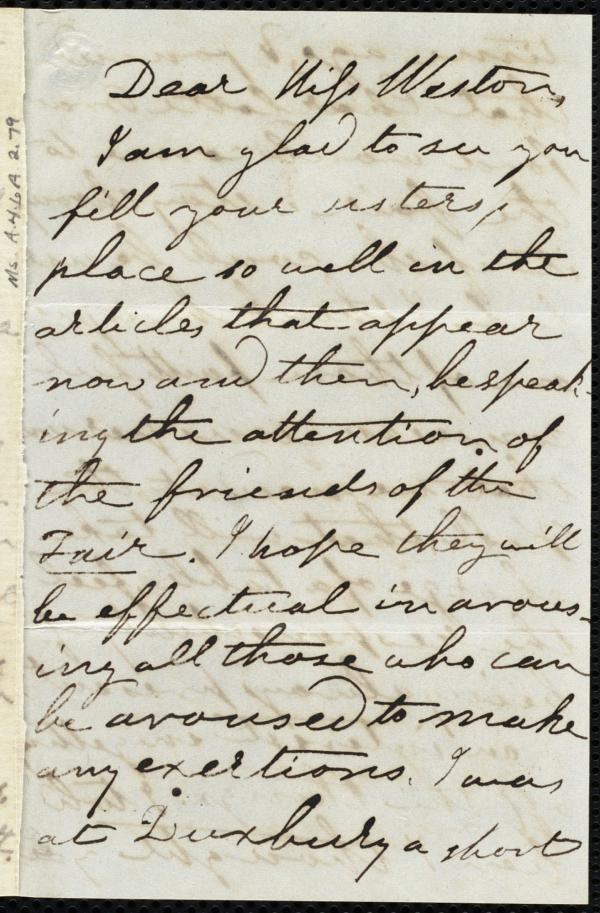 Dear Miss Weston,
I am glad to see you
fill your sisters,
place so well in the
articles that appear
now and then, bespeak-
ing the attention of
the friends of the
Fair. I hope they will
be effectual in arous-
ing all those who can
be aroused to make
any exertions. I was
at Duxbury a short
Ms. A.4.6A 2.79